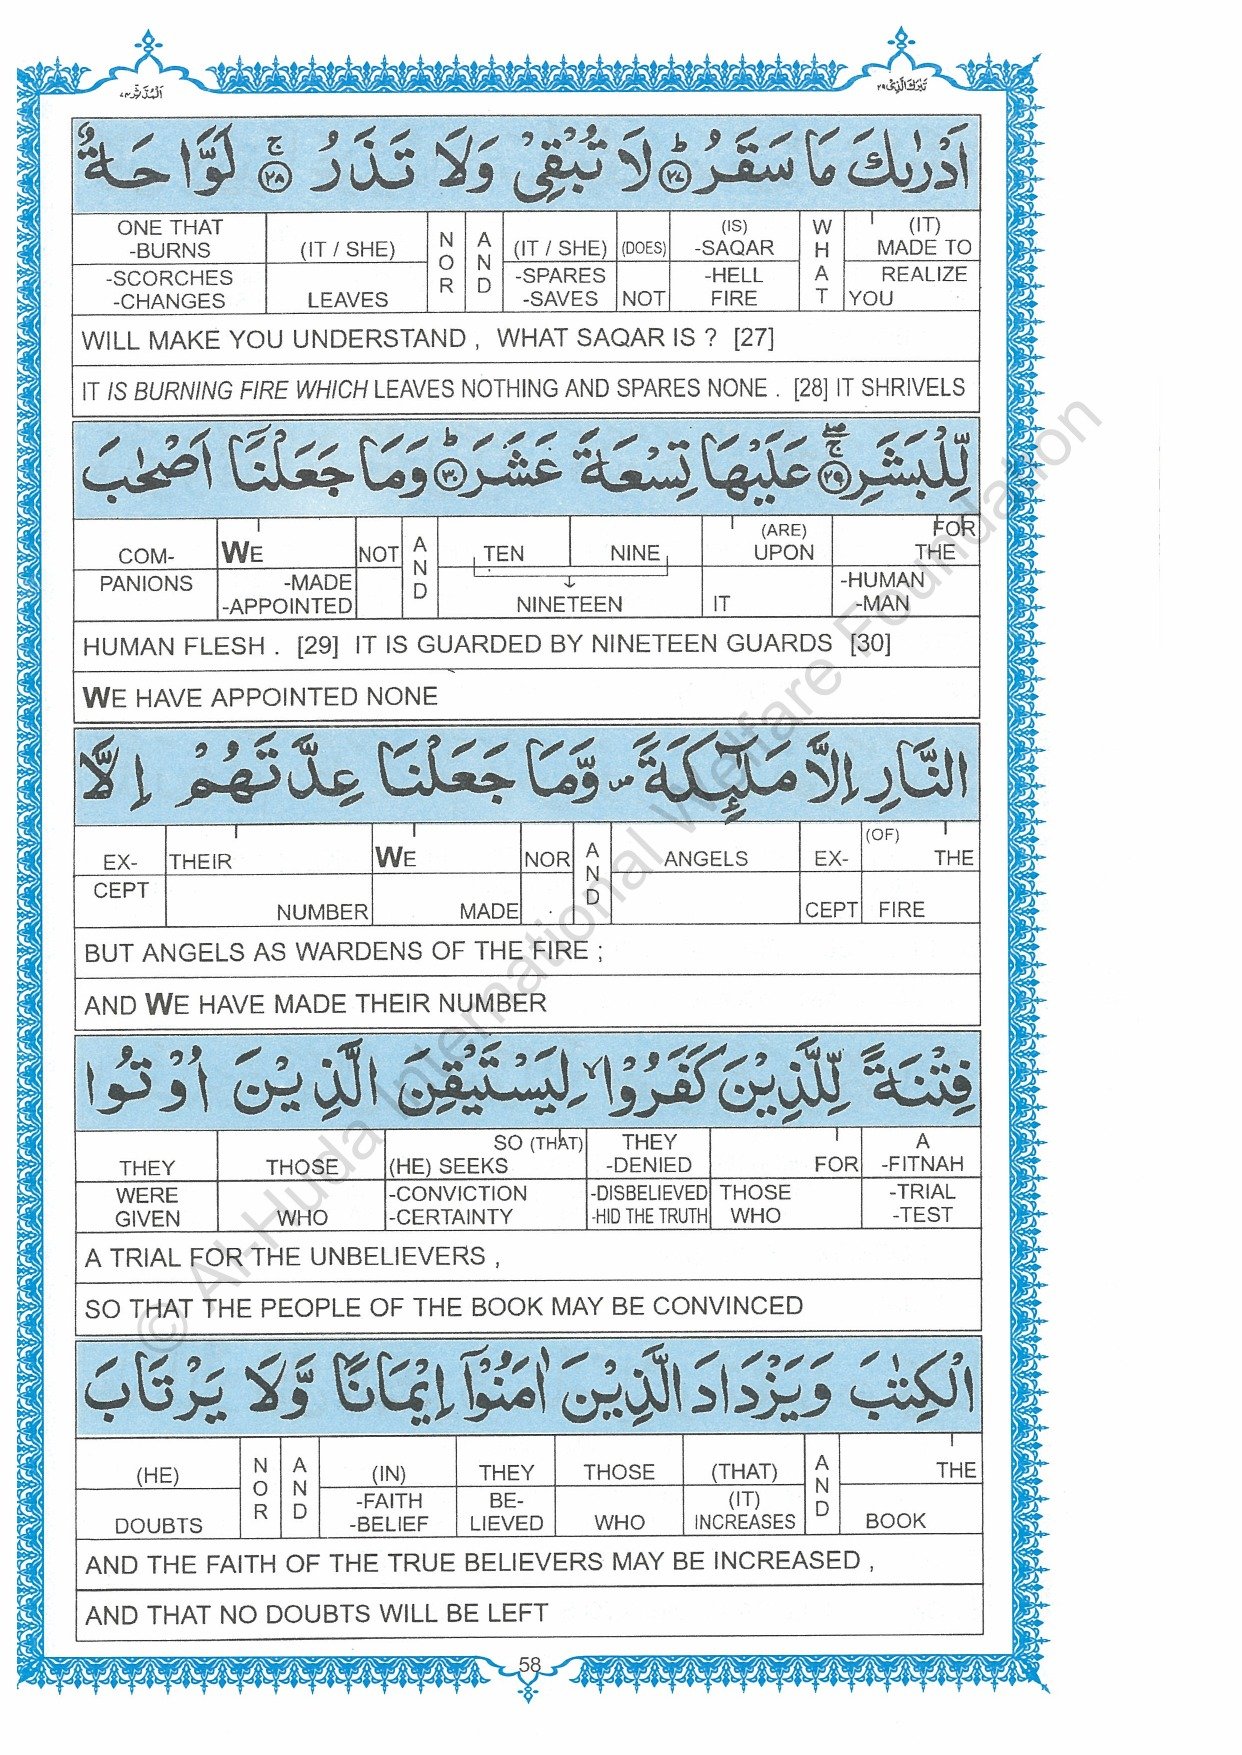 المدثر ٧٤
تبرك الذي ٢٩
اَدْرٰىكَ مَا سَقَرُ ؕ﴿٢٧﴾ لَا تُبْقِيْ وَلَا تَذَرُ ۚ﴿٢٨﴾ لَوَّاحَةٌ
ONE THAT -BURNS -SCORCHES -CHANGES | (IT / SHE) LEAVES | NOR | AND | (IT / SHE) -SPARES -SAVES | (DOES) NOT | (IS) -SAQAR -HELL FIRE | WHAT | (IT) MADE TO REALIZE YOU
WILL MAKE YOU UNDERSTAND , WHAT SAQAR IS ? [27]
IT IS BURNING FIRE WHICH LEAVES NOTHING AND SPARES NONE . [28] IT SHRIVELS
لِّلْبَشَرِ ۖۚ﴿٢٩﴾ عَلَيْهَا تِسْعَةَ عَشَرَ ؕ﴿٣٠﴾ وَمَا جَعَلْنَاۤ اَصْحٰبَ
COM- PANIONS | WE -MADE -APPOINTED | NOT | AND | TEN NINE NINETEEN | (ARE) UPON IT | FOR THE -HUMAN -MAN
HUMAN FLESH . [29] IT IS GUARDED BY NINETEEN GUARDS [30]
WE HAVE APPOINTED NONE
النَّارِ اِلَّا مَلٰٓىِٕكَةً ۪ وَّمَا جَعَلْنَا عِدَّتَهُمْ اِلَّا
EX- CEPT | THEIR NUMBER | WE MADE | NOR | AND | ANGELS | EX- CEPT | (OF) THE FIRE
BUT ANGELS AS WARDENS OF THE FIRE ;
AND WE HAVE MADE THEIR NUMBER
فِتْنَةً لِّلَّذِيْنَ كَفَرُوْا ۙ لِيَسْتَيْقِنَ الَّذِيْنَ اُوْتُوا
THEY WERE GIVEN | THOSE WHO | SO (THAT) (HE) SEEKS -CONVICTION -CERTAINTY | THEY -DENIED -DISBELIEVED -HID THE TRUTH | FOR THOSE WHO | A -FITNAH -TRIAL -TEST
A TRIAL FOR THE UNBELIEVERS ,
SO THAT THE PEOPLE OF THE BOOK MAY BE CONVINCED
الْكِتٰبَ وَيَزْدَادَ الَّذِيْنَ اٰمَنُوْۤا اِيْمَانًا وَّلَا يَرْتَابَ
(HE) DOUBTS | NOR | AND | (IN) -FAITH -BELIEF | THEY BE- LIEVED | THOSE WHO | (THAT) (IT) INCREASES | AND | THE BOOK
AND THE FAITH OF THE TRUE BELIEVERS MAY BE INCREASED ,
AND THAT NO DOUBTS WILL BE LEFT
58
© Al-Huda International Welfare Foundation